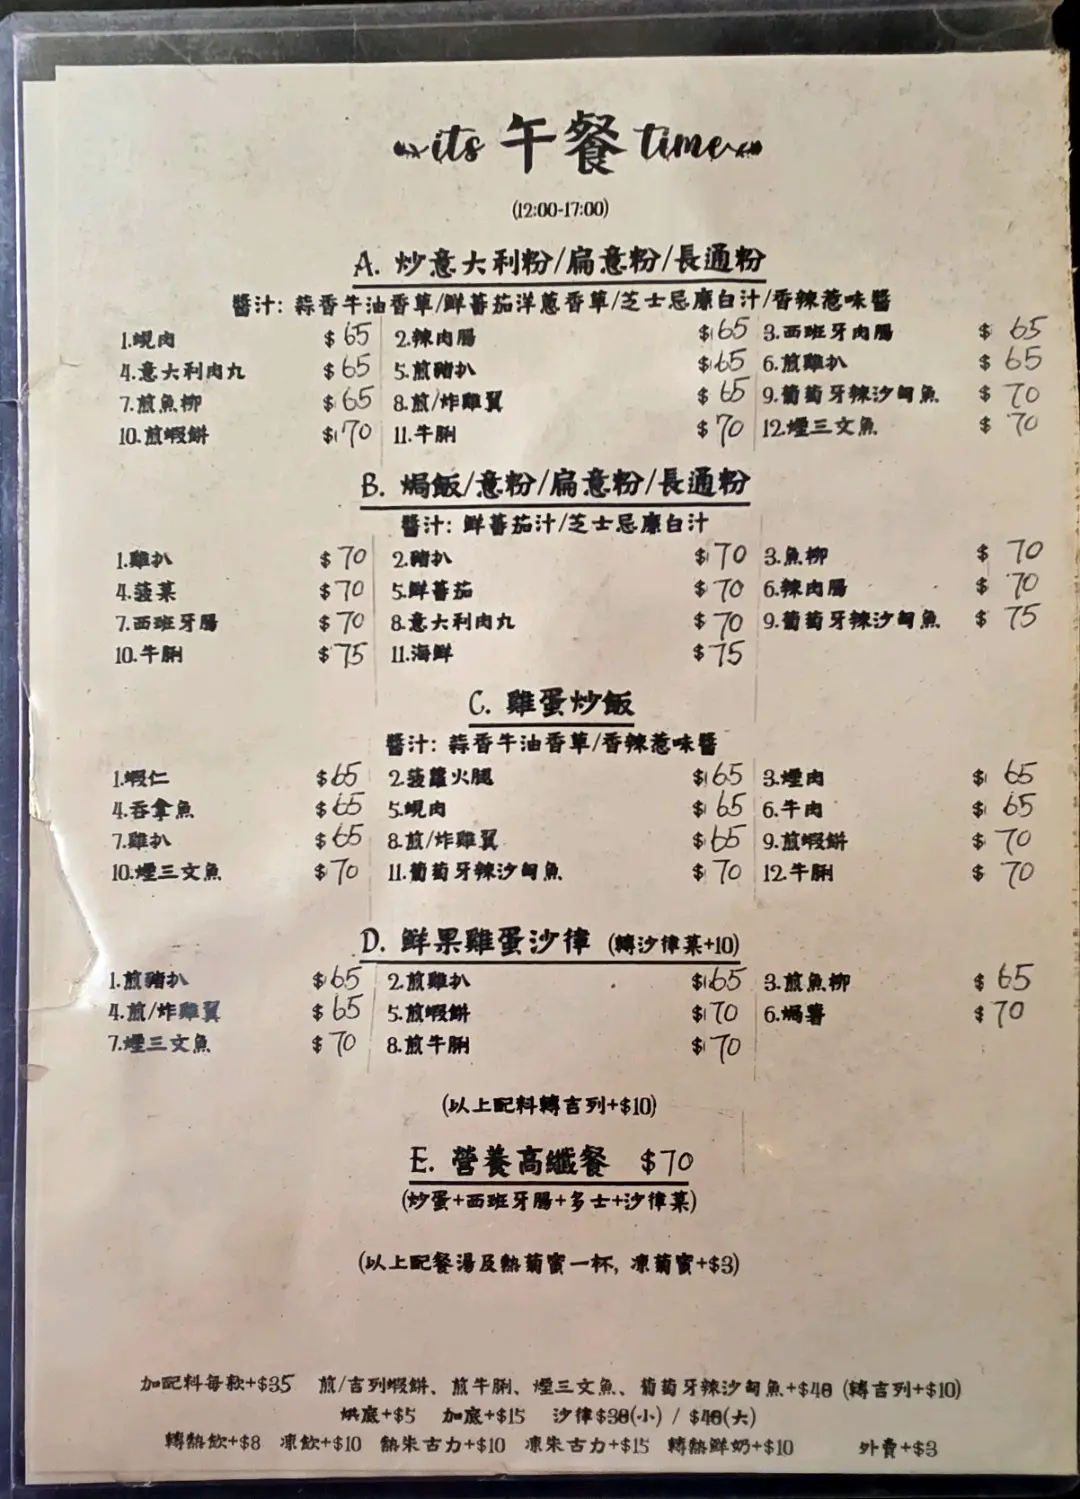 its 午餐 time
(12:00-17:00)
A. 炒意大利粉/扁意粉/長通粉
醬汁: 蒜香牛油香草/鮮蕃茄洋蔥香草/芝士忌廉白汁/香辣惹味醬
1.蜆肉 $65 2.辣肉腸 $65 3.西班牙肉腸 $65
4.意大利肉丸 $65 5.煎豬扒 $65 6.煎雞扒 $65
7.煎魚柳 $65 8.煎/炸雞翼 $65 9.葡萄牙辣沙甸魚 $70
10.煎蝦餅 $70 11.牛脷 $70 12.煙三文魚 $70
B. 焗飯/意粉/扁意粉/長通粉
醬汁: 鮮蕃茄汁/芝士忌廉白汁
1.雞扒 $70 2.豬扒 $70 3.魚柳 $70
4.菠菜 $70 5.鮮蕃茄 $70 6.辣肉腸 $70
7.西班牙腸 $70 8.意大利肉丸 $70 9.葡萄牙辣沙甸魚 $75
10.牛脷 $75 11.海鮮 $75
C. 雞蛋炒飯
醬汁: 蒜香牛油香草/香辣惹味醬
1.蝦仁 $65 2.菠蘿火腿 $65 3.煙肉 $65
4.吞拿魚 $65 5.蜆肉 $65 6.牛肉 $65
7.雞扒 $65 8.煎/炸雞翼 $65 9.煎蝦餅 $70
10.煙三文魚 $70 11.葡萄牙辣沙甸魚 $70 12.牛脷 $70
D. 鮮果雞蛋沙律 (轉沙律菜+10)
1.煎豬扒 $65 2.煎雞扒 $65 3.煎魚柳 $65
4.煎/炸雞翼 $65 5.煎蝦餅 $70 6.焗薯 $70
7.煙三文魚 $70 8.煎牛脷 $70
(以上配料轉吉列+$10)
E. 營養高纖餐 $70
(炒蛋+西班牙腸+多士+沙律菜)
(以上配餐湯及熱菊蜜一杯, 凍菊蜜+$3)
加配料每款+$35 煎/吉列蝦餅、煎牛脷、煙三文魚、葡萄牙辣沙甸魚+$40 (轉吉列+$10)
烘底+$5 加底+$15 沙律$30(小) / $40(大)
轉熱飲+$8 凍飲+$10 熱朱古力+$10 凍朱古力+$15 轉熱鮮奶+$10 外賣+$3